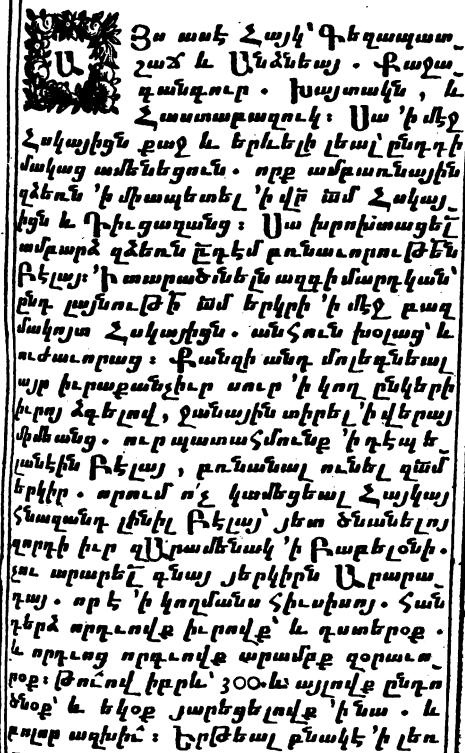 Ա Յս ասէ Հայկ՝ Գեղապատ֊
շաճ և Անձնեայ . Քաջա֊
գանգուր . Խայտակն , և
Հաստաբազուկ : Սա 'ի մէջ
Հսկայիցն քաջ և երևելի լեալ՝ ընդդի
մակաց ամենեցուն . որք ամբառնային
զձեռն 'ի միապետել 'ի վր ամ Հսկայ֊
իցն և Դիւցազանց : Սա խրոխտացել
ամբարձ զձեռն ընդդէմ բռնաւորութեն
Բէլայ : 'Ի տարածնելն ազգի մարդկան՝
ընդ լայնութի ամ երկրի 'ի մէջ բազ
մակոյտ Հսկայիցն . անհուն խօլաց՝ և
ուժաւորաց : Քանզի անդ մոլեգնեալ
այր իւրաքանչիւր սուր 'ի կող ընկերի
իւրոյ ձգելով , ջանային տիրել 'ի վերայ
միմեանց . ուր պատահմունք 'ի դէպ ե֊
լանէին Բէլայ , բռնանալ ունել զամ
երկիր . որում ո՛չ կամեցեալ Հայկայ
հնազանդ լինիլ Բէլայ՝ յետ ծնանելոյ
զորդի իւր զԱրամենակ 'ի Բաբելօնի .
չու արարել գնայ յերկիրն Արարա֊
դայ . որ է 'ի կողմանս հիւսիսոյ . հան
դերձ որդւովք իւրովք՝ և դստերօք .
և որդւոց որդւովք արամբք զօրաւո֊
րօք : թուով իբրև՝ 300 . և այլովք ընդո
ծնօք՝ և եկօք յարեցելովք 'ի նա . և
բոլոր աղխիւ : Երթեալ բնակէ 'ի լեռ